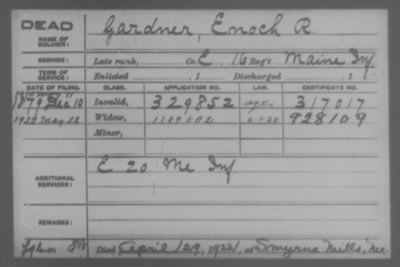 DEAD
NAME OF SOLDIER:
Gardner, Enoch R.
SERVICE:
Late rank, Co. E, 16 Reg't Maine Inf
TERM OF SERVICE:
Enlisted , 1 Discharged , 1
DATE OF FILING. CLASS. APPLICATION NO. LAW. CERTIFICATE NO.
1879 Dec 10 Invalid, 329852 317017
1922 May 12 Widow, 928109
Minor,
ADDITIONAL SERVICES:
E 20 Me Inf
REMARKS:
Died April 29, 1922, at Smyrna Mills, Me